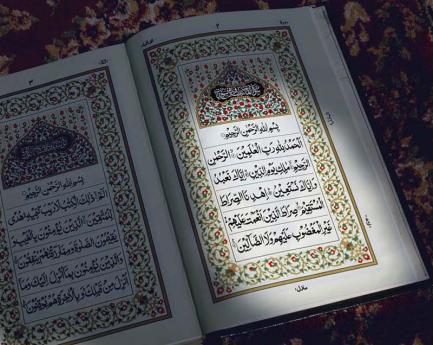 ٢
بِسْمِ اللّٰهِ الرَّحْمٰنِ الرَّحِيْمِ
اَلْحَمْدُ لِلّٰهِ رَبِّ الْعٰلَمِيْنَ الرَّحْمٰنِ
الرَّحِيْمِ مٰلِكِ يَوْمِ الدِّيْنِ اِيَّاكَ نَعْبُدُ
وَاِيَّاكَ نَسْتَعِيْنُ اِهْدِنَا الصِّرَاطَ
الْمُسْتَقِيْمَ صِرَاطَ الَّذِيْنَ اَنْعَمْتَ عَلَيْهِمْ
غَيْرِ الْمَغْضُوْبِ عَلَيْهِمْ وَلَا الضَّآلِّيْنَ
٣
بِسْمِ اللّٰهِ الرَّحْمٰنِ الرَّحِيْمِ
الٓمّٓ ذٰلِكَ الْكِتٰبُ لَا رَيْبَ فِيْهِ هُدًى
لِّلْمُتَّقِيْنَ الَّذِيْنَ يُؤْمِنُوْنَ بِالْغَيْبِ
وَيُقِيْمُوْنَ الصَّلٰوةَ وَمِمَّا رَزَقْنٰهُمْ يُنْفِقُوْنَ
وَالَّذِيْنَ يُؤْمِنُوْنَ بِمَآ اُنْزِلَ اِلَيْكَ وَمَآ
اُنْزِلَ مِنْ قَبْلِكَ وَبِالْاٰخِرَةِ هُمْ يُوْقِنُوْنَ